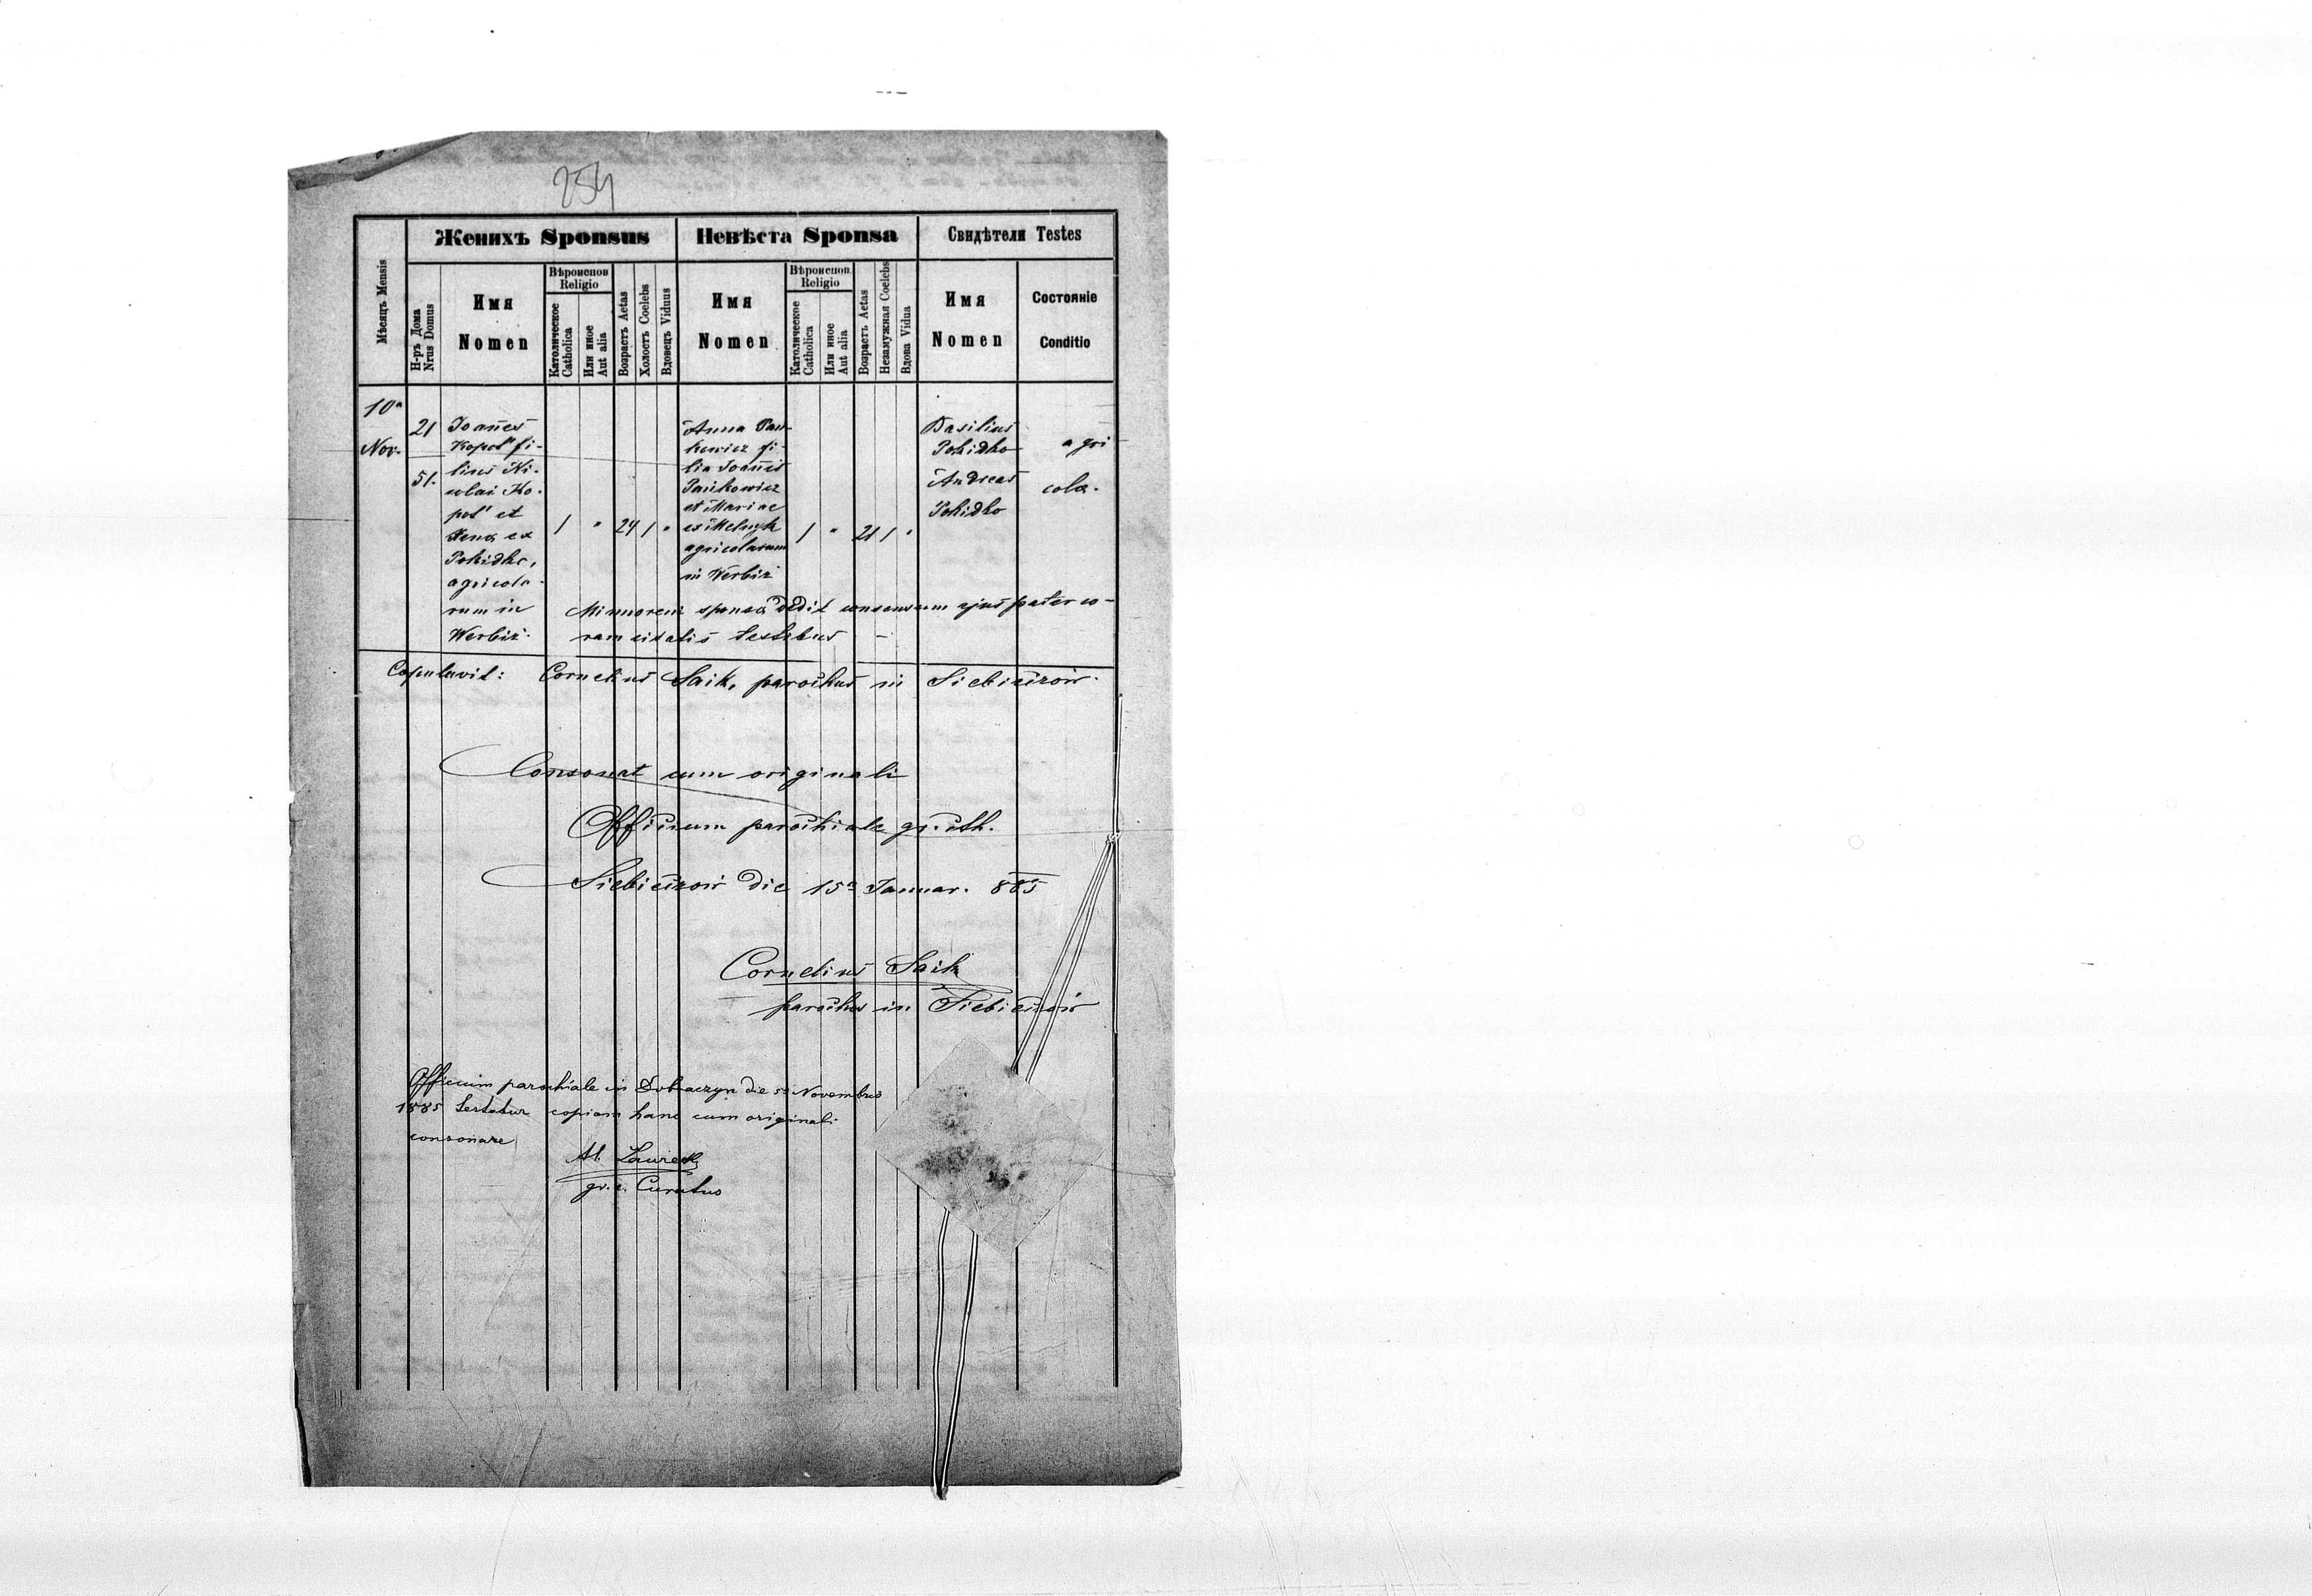 254
Женихъ Sponsus
Невѣста Sponsa
Свидѣтели Testes
Мѣсяцъ Mensis
Н-ръ Дома
Nrus Domus
Имя
Nomen
Вѣроиспов
Religio
Католическое
Catholica
Или иное
Aut alia
Возрастъ Aetas
Холостъ Coelebs
Вдовецъ Viduus
Имя
Nomen
Вѣроиспов.
Religio
Католическое
Catholica
Или иное
Aut alia
Возрастъ Aetas
Незамужная Coelebs
Вдова Vidua
Имя
Nomen
Состояніе
Conditio
10ª
Nov.
21
51.
Joañes
Kopot' fi-
lius Ni-
colai Ko-
pot' et
ex
Pokidko,
agricola-
rum in
Werbiż.
1 " 24 1 "
Anna Pań-
kewicz fi-
lia Joañis
Pańkowicz
et Mariae
ex Melnyk
agricolarum
in Werbiż
1 " 21 1 "
Basilius
Pokidko
Andreas
Pokidko
agri
colae.
Minnoreni sponsa dedit consensum ejus pater co-
ram citatis testibus —
Copulavit: Cornelius Saik, parochus in Siebieczów.
Consonat cum originali
Officium parochiale gr. cth.
Siebieczów die 15ª Januar. 885
Cornelius Saik
parochus in Siebieczów
Officium parochiale in Dobraczyn die 5ª Novembris
1885 testatur copiam hanc cum originali
consonare
gr. c. Curatus